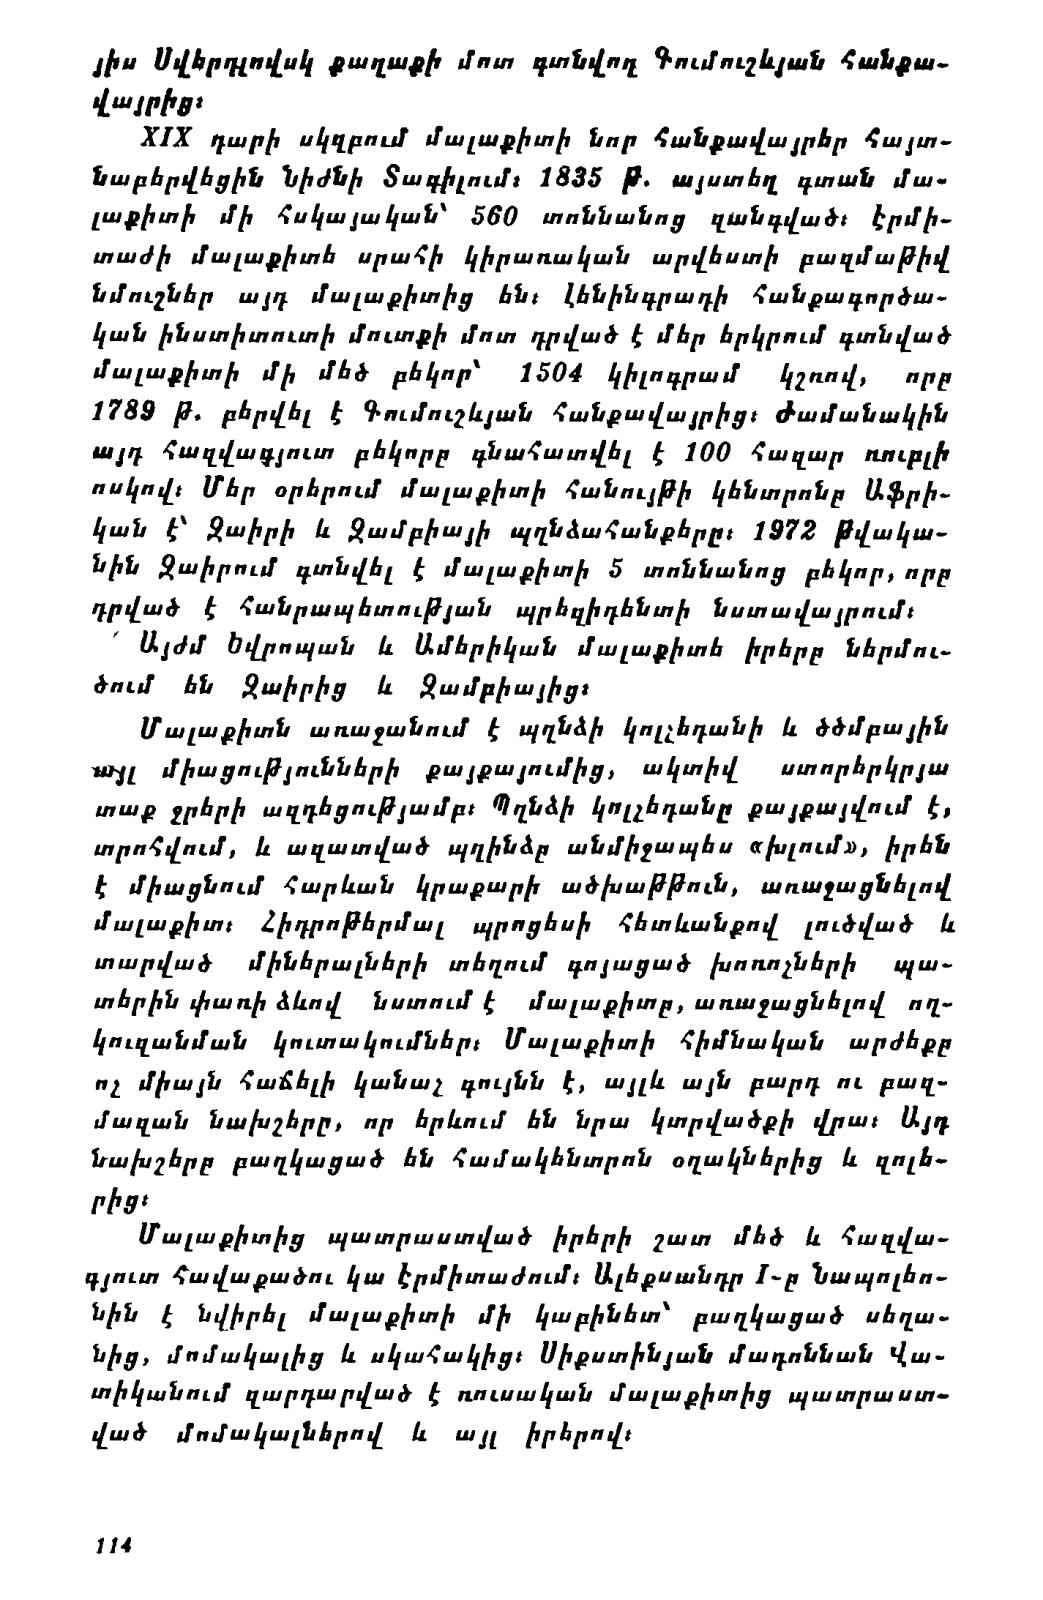 յիս Սվերդլովսկ քաղաքի մոտ գտնվող Գումուշևյան հանքա-
վայրից։
XIX դարի սկզբում մալաքիտի նոր հանքավայրեր հայտ-
նաբերվեցին Նիժնի Տագիլում։ 1835 թ. այստեղ գտան մա-
լաքիտի մի հսկայական՝ 560 տոննանոց զանգված։ Էրմի-
տաժի մալաքիտե սրահի կիրառական արվեստի բազմաթիվ
նմուշներ այդ մալաքիտից են։ Լենինգրադի հանքագործա-
կան ինստիտուտի մուտքի մոտ դրված է մեր երկրում գտնված
մալաքիտի մի մեծ բեկոր՝ 1504 կիլոգրամ կշռով, որը
1789 թ. բերվել է Գումուշևյան հանքավայրից։ Ժամանակին
այդ հազվագյուտ բեկորը գնահատվել է 100 հազար ռուբլի
ոսկով։ Մեր օրերում մալաքիտի հանույթի կենտրոնը Աֆրի-
կան է՝ Զաիրի և Զամբիայի պղնձահանքերը։ 1972 թվակա-
նին Զաիրում գտնվել է մալաքիտի 5 տոննանոց բեկոր, որը
դրված է հանրապետության պրեզիդենտի նստավայրում։
Այժմ Եվրոպան և Ամերիկան մալաքիտե իրերը ներմու-
ծում են Զաիրից և Զամբիայից։
Մալաքիտն առաջանում է պղնձի կոլչեդանի և ծծմբային
այլ միացությունների քայքայումից, ակտիվ ստորերկրյա
տաք ջրերի ազդեցությամբ։ Պղնձի կոլչեդանը քայքայվում է,
տրոհվում, և ազատված պղինձը անմիջապես «խլում», իրեն
է միացնում հարևան կրաքարի ածխաթթուն, առաջացնելով
մալաքիտ։ Հիդրոթերմալ պրոցեսի հետևանքով լուծված և
տարված միներալների տեղում գոյացած խոռոչների պա-
տերին փառի ձևով նստում է մալաքիտը, առաջացնելով ող-
կուզանման կուտակումներ։ Մալաքիտի հիմնական արժեքը
ոչ միայն հաճելի կանաչ գույնն է, այլև այն բարդ ու բազ-
մազան նախշերը, որ երևում են նրա կտրվածքի վրա։ Այդ
նախշերը բաղկացած են համակենտրոն օղակներից և զոլե-
րից։
Մալաքիտից պատրաստված իրերի շատ մեծ և հազվա-
գյուտ հավաքածու կա Էրմիտաժում։ Ալեքսանդր I-ը Նապոլեո-
նին է նվիրել մալաքիտի մի կաբինետ՝ բաղկացած սեղա-
նից, մոմակալից և սկահակից։ Սիքստինյան մադոննան Վա-
տիկանում զարդարված է ռուսական մալաքիտից պատրաստ-
ված մոմակալներով և այլ իրերով։
114